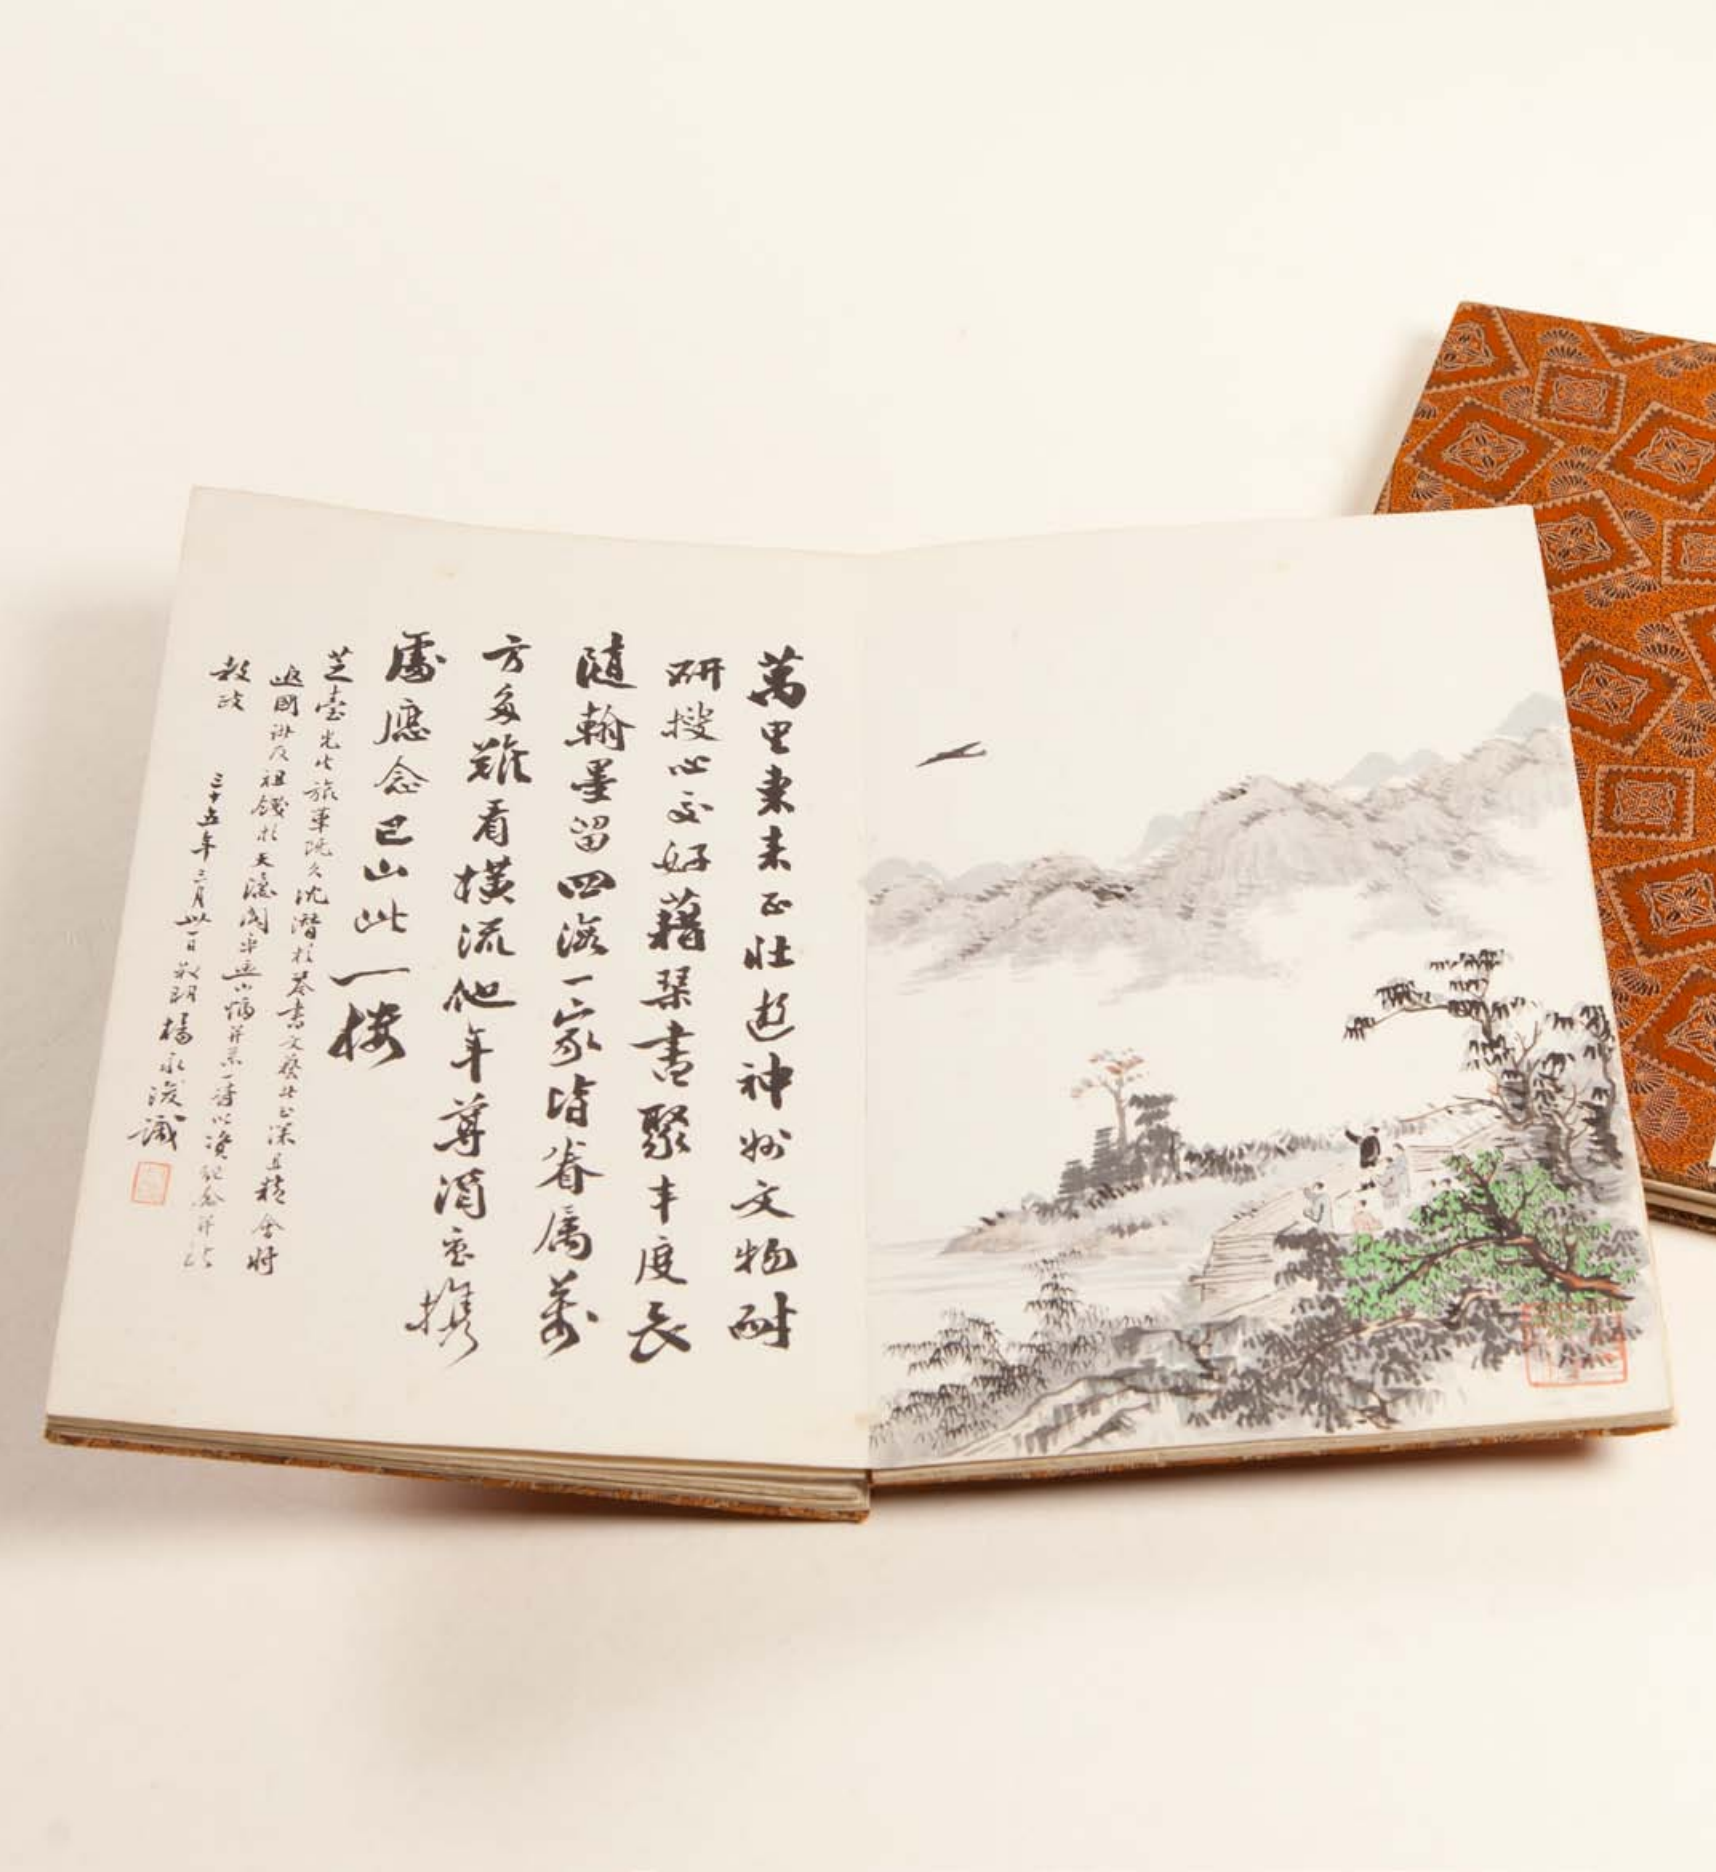 萬里東來正壯遊神州文物耐
研搜心交好藉琹書聚丰度長
隨翰墨留四海一家皆眷属萬
方多難看橫流他年尊酒重携
處應念巴山此一楼
芝臺先生旅華既久沈潜於琴書文藝者至深且精今將
返國諸友祖餞於天風阁率画小幅并系一詩以資紀念并以
教政
三十五年三月卅一日 楊永浚識